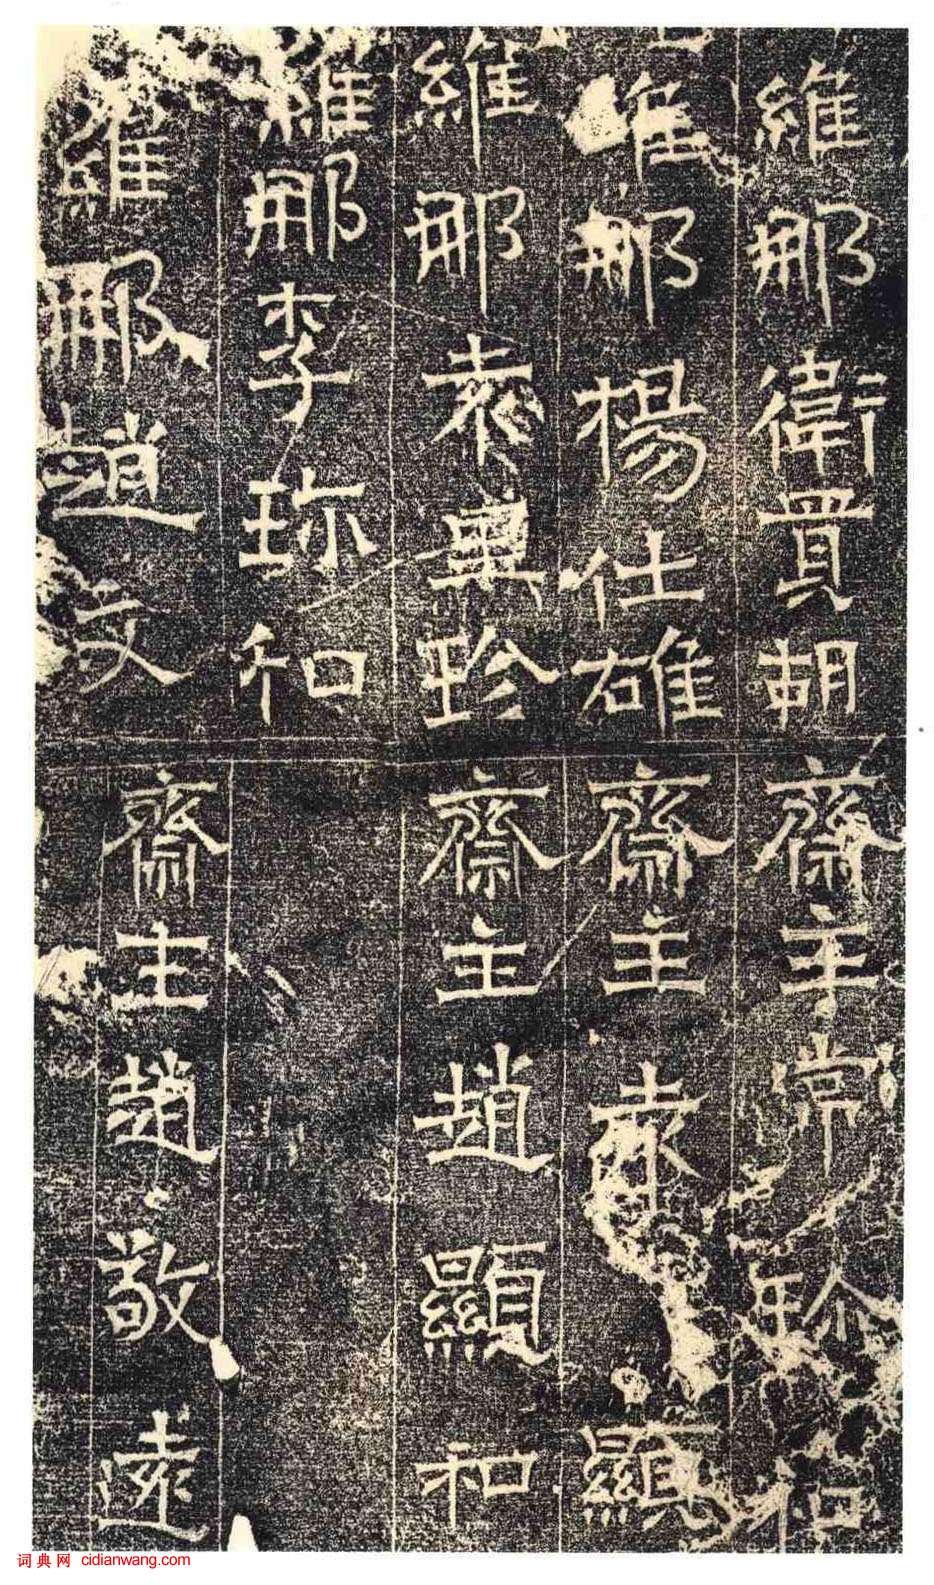 維那衛買胡
維那楊仕雄
維那袁興珍
維那李珎和
維那趙文
齋主常珎和
齋主袁顯
齋主趙顯和
齋主趙敬遠
词典网 cidianwang.com